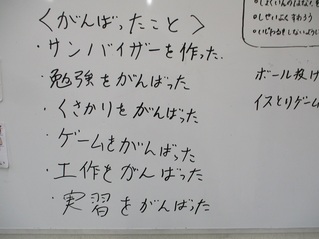 <がんばったこと>
・サンバイザーを作った
・勉強をがんばった
・くさかりをがんばった
・ゲームをがんばった
・工作をがんばった
・実習をがんばった
・しせいよくすわろう
ボール投げ
イスとりゲーム